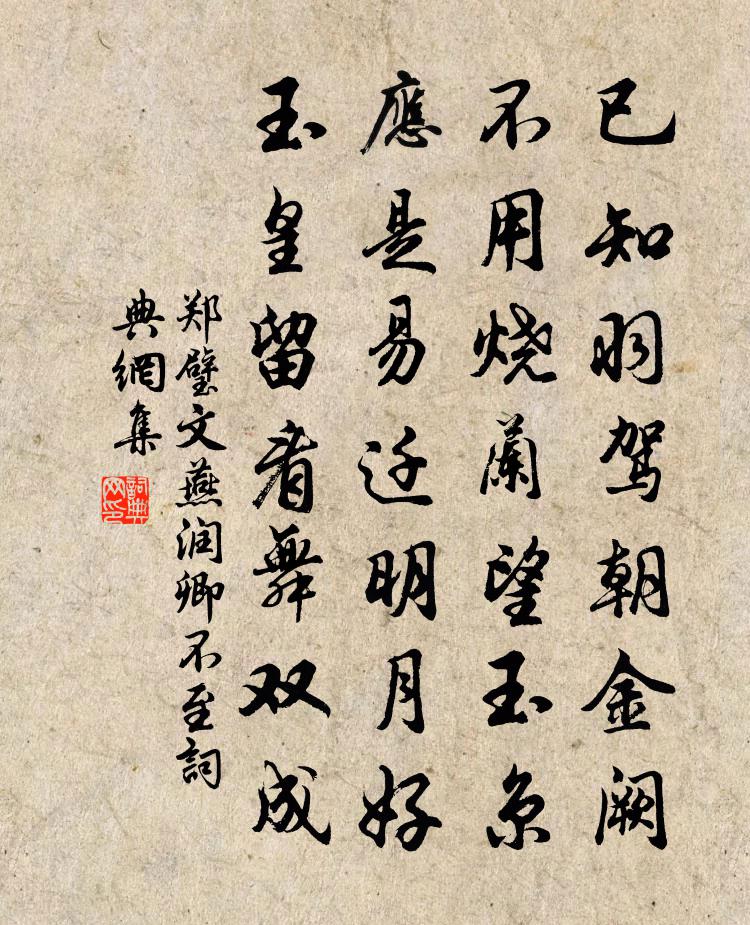 已知羽駕朝金闕
不用烧蘭望玉京
應是易迁明月好
玉皇留看舞双成
郑璧文燕润卿不至詞
典網集
詞典网印